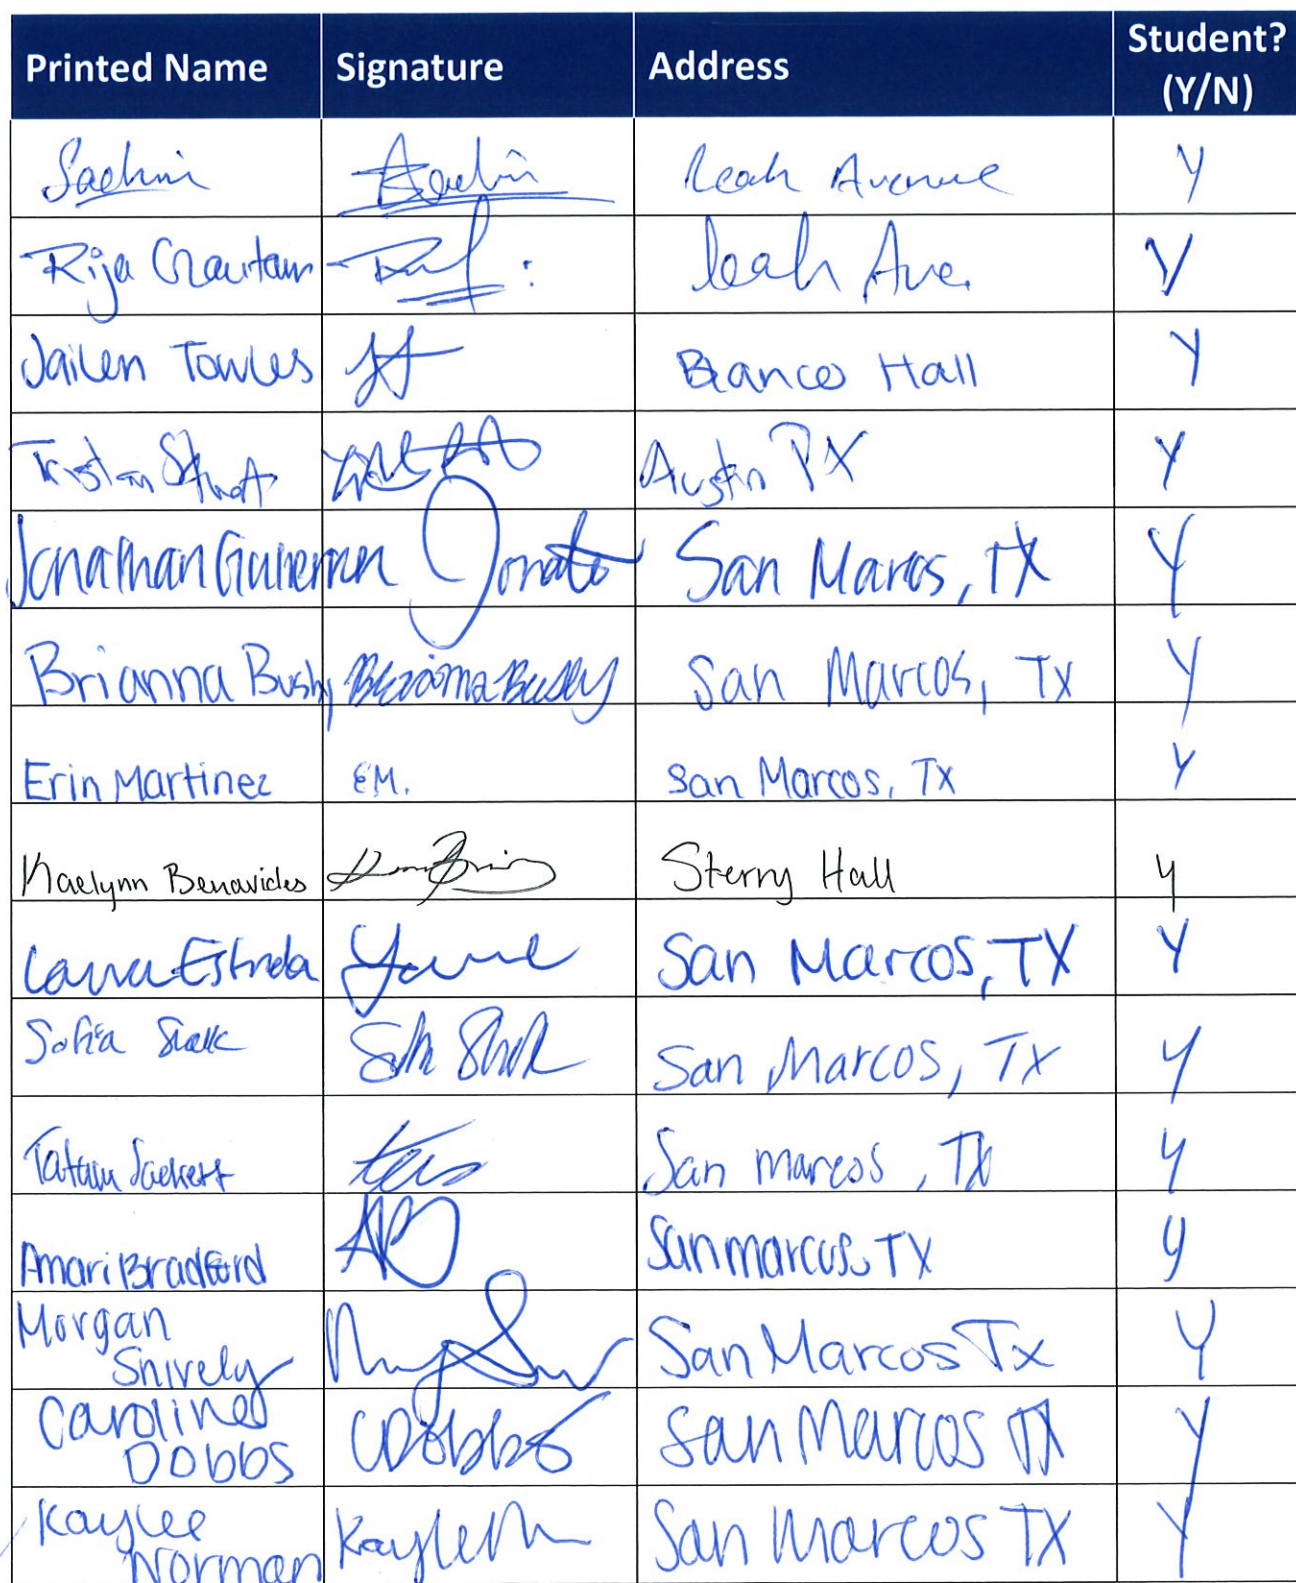 Printed Name Signature Address Student? (Y/N)
Sachin Sachin Leah Avenue Y
Rija Gautam leah Ave. Y
Jailen Towles Blanco Hall Y
Tristan Austin TX Y
Jonathan Gutierrez San Marcos, TX Y
Brianna Bushy Brianna Bushy San Marcos, Tx Y
Erin Martinez EM. San Marcos, Tx Y
Kaelynn Benavides Sterry Hall y
Laura Estrada San Marcos, TX Y
Sofia San Marcos, Tx y
Tatum Sackett San marcos, TX y
Amari Bradford AB San marcos, TX y
Morgan
Snively San Marcos Tx Y
Caroline
Dobbs CDobbs San Marcos TX Y
Kaylee
Norman San Marcos TX Y